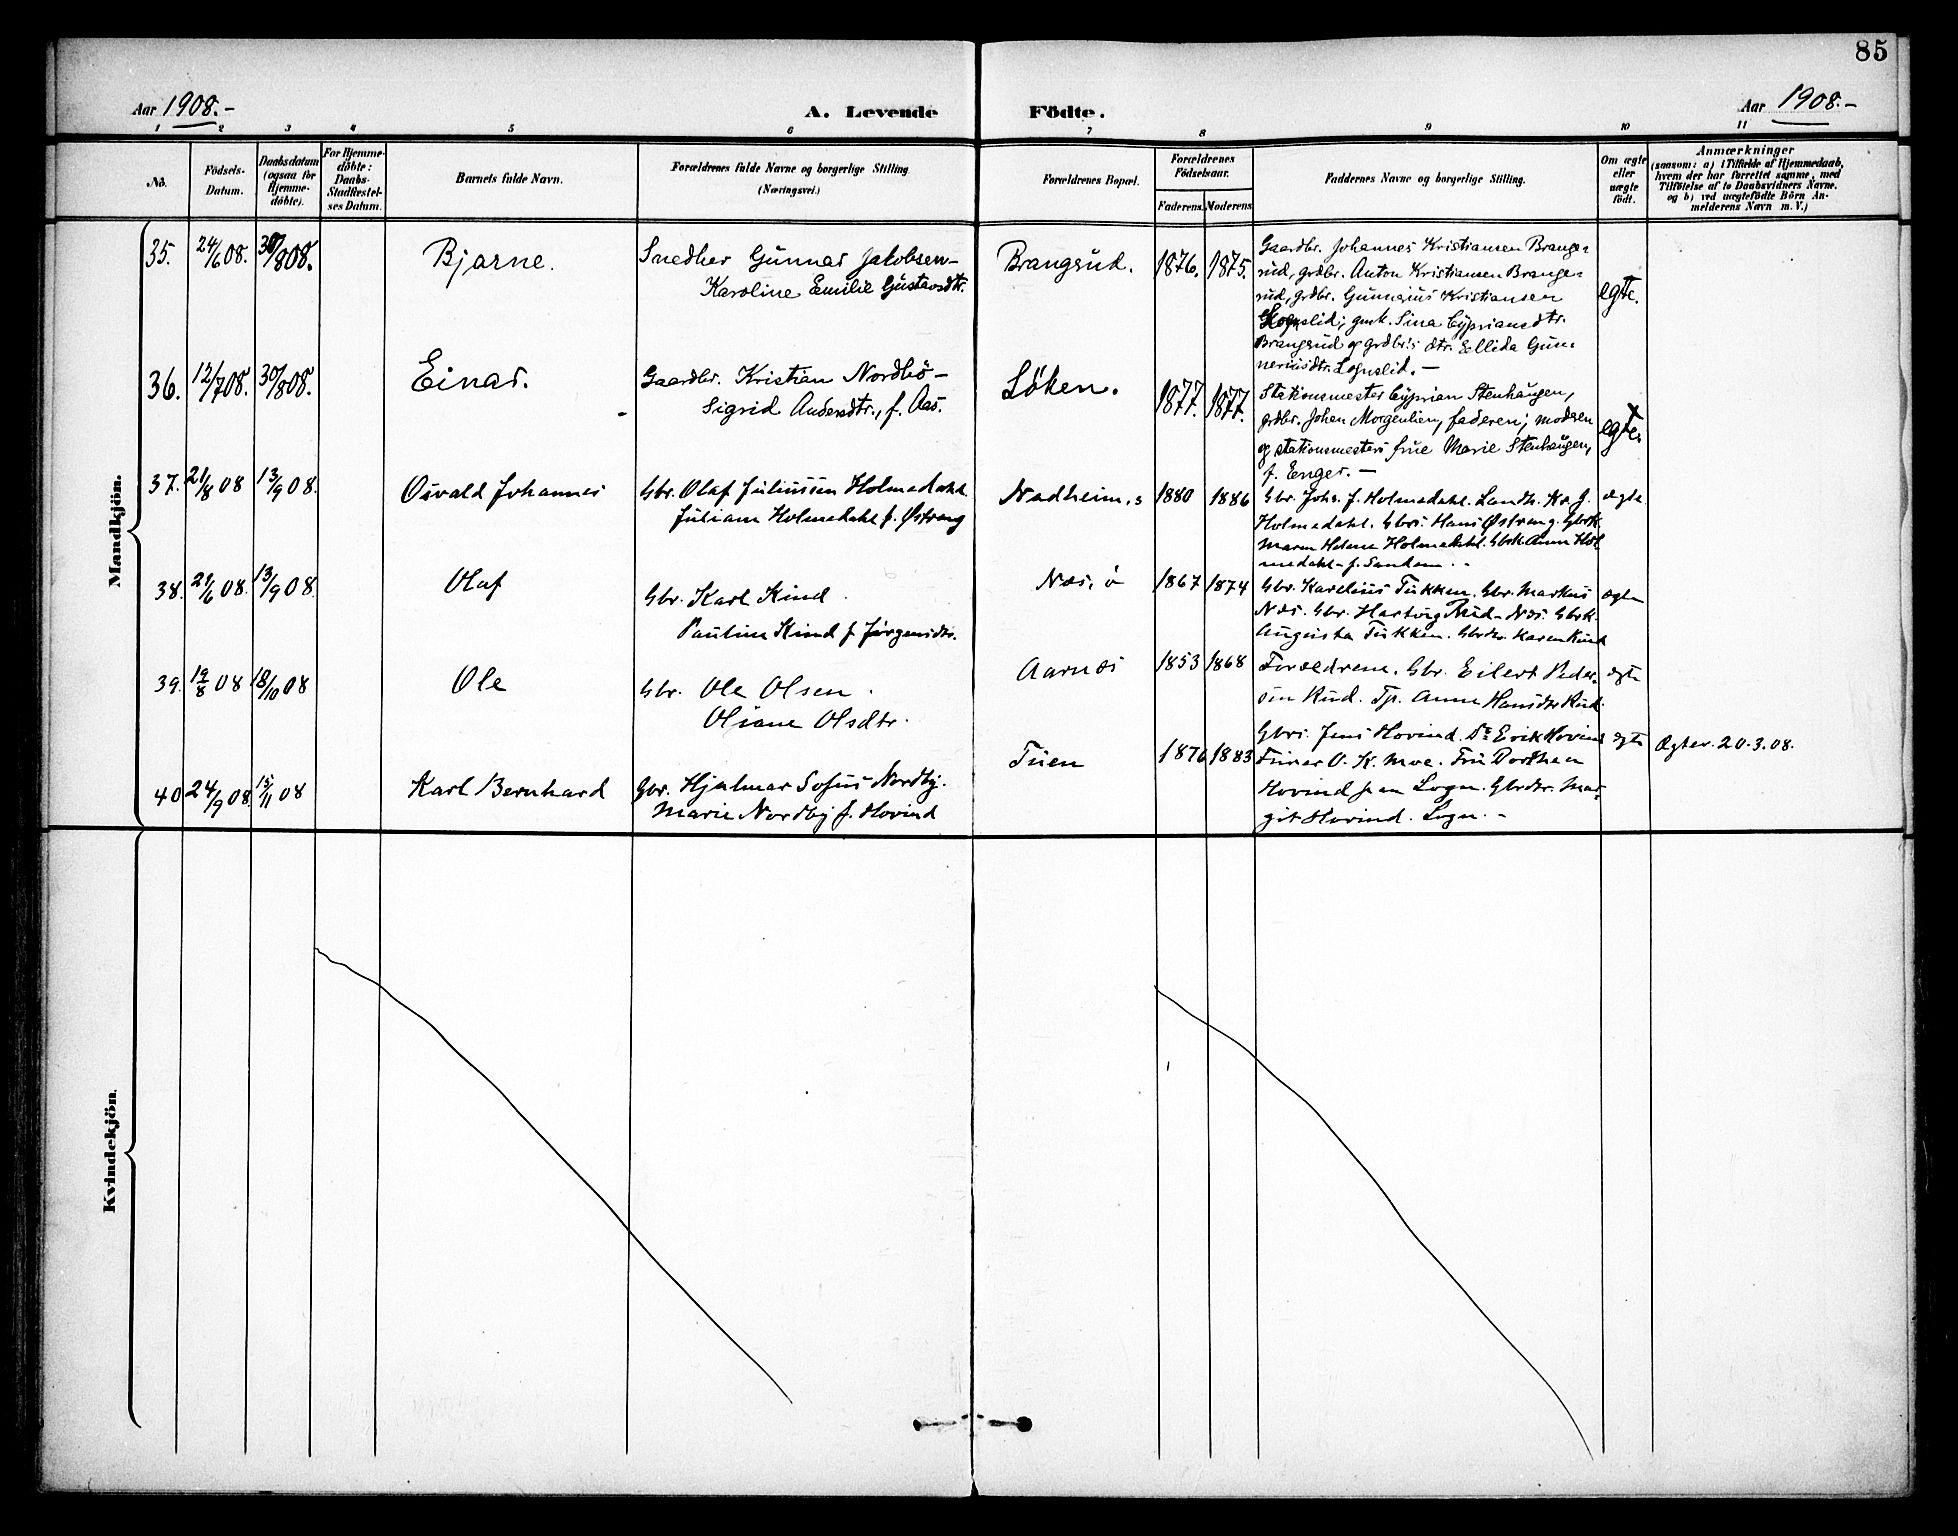 85
Aar 1908.-
A. Levende Födte.
Aar 1908.-
1 2 3 4 5 6 7 8 9 10 11
No.
Födsels-
Datum.
Daabsdatum
(ogsaa for
Hjemme-
döbte).
For Hjemme-
döbte:
Daabs-
Stadfæstel-
ses Datum.
Barnets fulde Navn.
Forældrenes fulde Navne og borgerlige Stilling
(Næringsvei.)
Forældrenes Bopæl.
Forældrenes
Födselsaar.
Faderens. Moderens.
Faddernes Navne og borgerlige Stilling.
Om ægte
eller
uægte
født.
Anmærkninger
(saasom: a) i Tilfælde af Hjemmedaab,
hvem der har forrettet samme, med
Tilföielse af to Daabsvidners Navne.
og b) ved uægtefödte Börn An-
melderens Navn m. V.)
Mandkjön.
35. 24/6 08. 30/8 08. Bjarne.
Snedker Gunnar Jakobsen-
Karoline Emilie Gustavsdtr.
Brangsrud. 1876. 1875.
Gaardbr. Johannes Kristiansen Branges
rud, grdbr. Anton Kristiansen Branges
rud, grdbr. Gunnerius Kristiansen
Lognslid; gmk. Sina Cypriansdtr.
Brangsrud og grdbr's dtr. Ellida Gun-
neriusdtr. Lognslid. -
egte.
36. 12/7 08. 30/8 08. Einar.
Gaardbr. Kristian Nordbö -
Sigrid Andersdtr., f. Aas.
Löken. 1877. 1877.
Stationsmester Cyprian Stenhaugen,
grdbr. Johan Morgenlien, faderen; modren
og stationsmesters frue Marie Stenhaugen,
f. Enger. -
egte.
37. 21/8 08 13/9 08. Osvald Johannes
Gbr. Olaf Juliussen Holmedahl.
Juliane Holmedahl f. Østreng
Nadheim, s 1880 1886
Gbr. Johs. J. Holmedahl. Landh. K. J.
Holmedahl. Gbrs. Hans Østreng. Gbrk.
Maren Helene Holmedahl. Gbrk. Anne Hol
medahl f. Sanham.
ægte
38. 29/6 08. 13/9 08. Olaf
Gbr. Karl Kind.
Pauline Kind f. Jörgensdtr.
Næs, ö 1867 1874
Gbr. Karelius Tukken. Gbr. Markus
Næs. Gbr. Hartvig Rud - Næs. Gbrk.
Augusta Tukken. Gbrdtr. Karen Rud
ægte
39. 19/8 08 18/10 08 Ole
Gbr. Ole Olsen.
Oliane Olsdtr.
Aarnæs 1853 1868
Forældrene. Gbr. Eilert Peder-
sen Rud. Tp. Anne Hansdtr Rud.
ægte
40 24/9 08. 15/11 08 Karl Bernhard
Gbr. Hjalmar Sofus Nordby.
Marie Nordby f. Hovind
Tuen 1876 1883
Gbrs. Jens Hovind. Do Erik Hovind
Furer O. K. Moe. Fru Dorthea
Hovind f. en Logn. Gbrdtr. Mar-
git Hovind. Logn. -
ægte Ægtev. 20.3.08.
Kvindekjön.